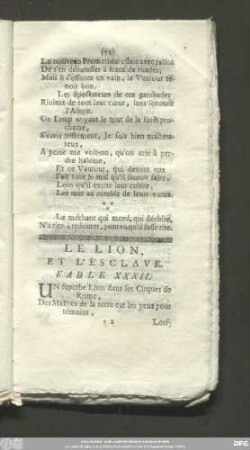 (72)
Le nouveau Promethée essaie avec raison
De s'en débarasser à force de ruades;
Mais il s'efforce en vain, le Vautour te-
noit bon.
Les spectateurs de ces gambades
Rioient de tout leur cœur, sans secourir
l'Ânon.
Un Loup voyant le tout de la forêt pro-
chaine,
S'écria tristement, Je suis bien malheu-
reux,
A peine me voit-on, qu'on crie à per-
dre haleine,
Et ce Vautour, qui devant eux
Fait tout le mal qu'il sauroit faire,
Loin qu'il excite leur colère,
Les met au comble de leurs vœux.
* *
*
Le méchant qui mord, qui déchire,
N'a rien à redouter, pourvu qu'il fasse rire.
LE LION,
ET L'ESCLAVE.
FABLE XXXII.
UN superbe Lion dans les Cirques de
Rome,
Des Maîtres de la terre eut les yeux pour
témoins,
Lors;